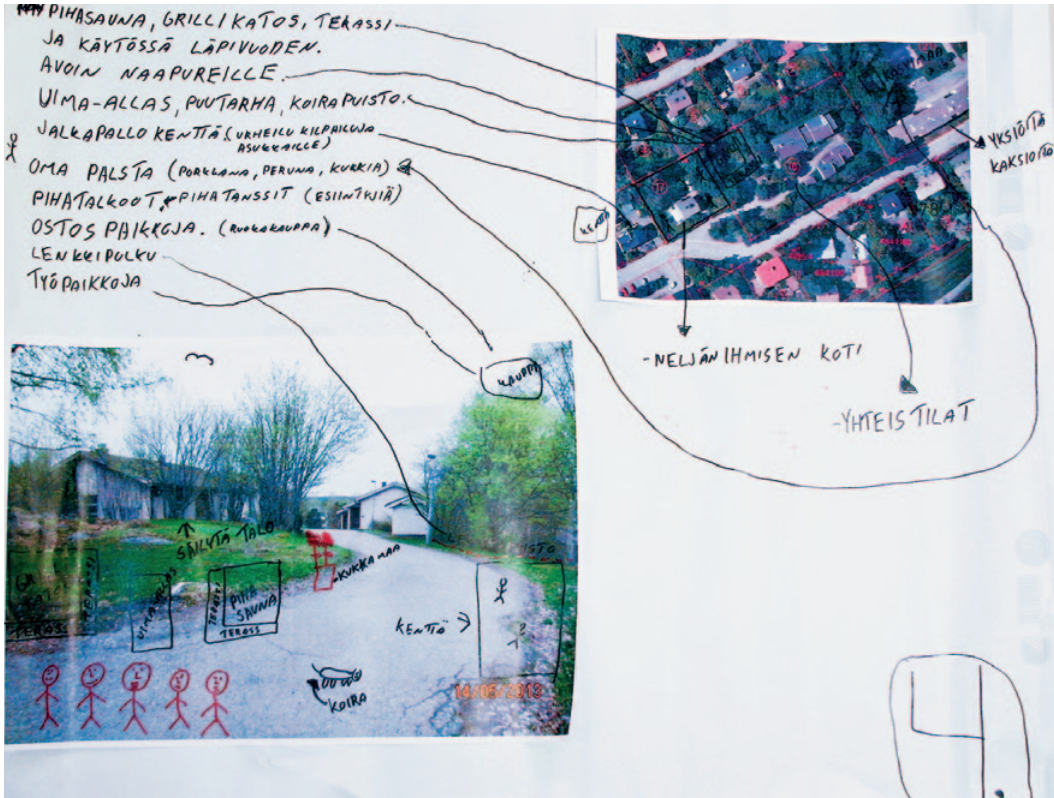 PIHASAUNA, GRILLIKATOS, TERASSI
JA KÄYTÖSSÄ LÄPIVUODEN.
AVOIN NAAPUREILLE.
UIMA-ALLAS, PUUTARHA, KOIRAPUISTO.
JALKAPALLO KENTTÄ (URHEILU KILPAILUJA
ASUKKAILLE)
OMA PALSTA (PORKKANA, PERUNA, KUKKIA)
PIHATALKOOT PIHATANSSIT (ESIINTYJIÄ)
OSTOS PAIKKOJA. (RUOKAKAUPPA)
LENKKIPOLKU
TYÖPAIKKOJA
YKSIÖITÄ
KAKSIOITA
KENTTÄ
-NELJÄN IHMISEN KOTI
-YHTEISTILAT
KAUPPA
SÄILYTÄ TALO
KUKKAMAA
TERASSI
TERASS
UIMA-ALLAS
TERASSI
PIHA
SAUNA
TERASS
KENTTÄ
KOIRA
14/05/2013
4.